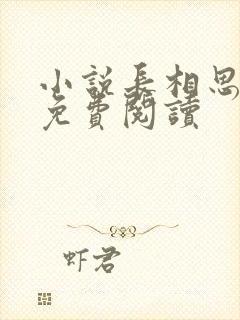 小説長相思
免費閱讀
虾君